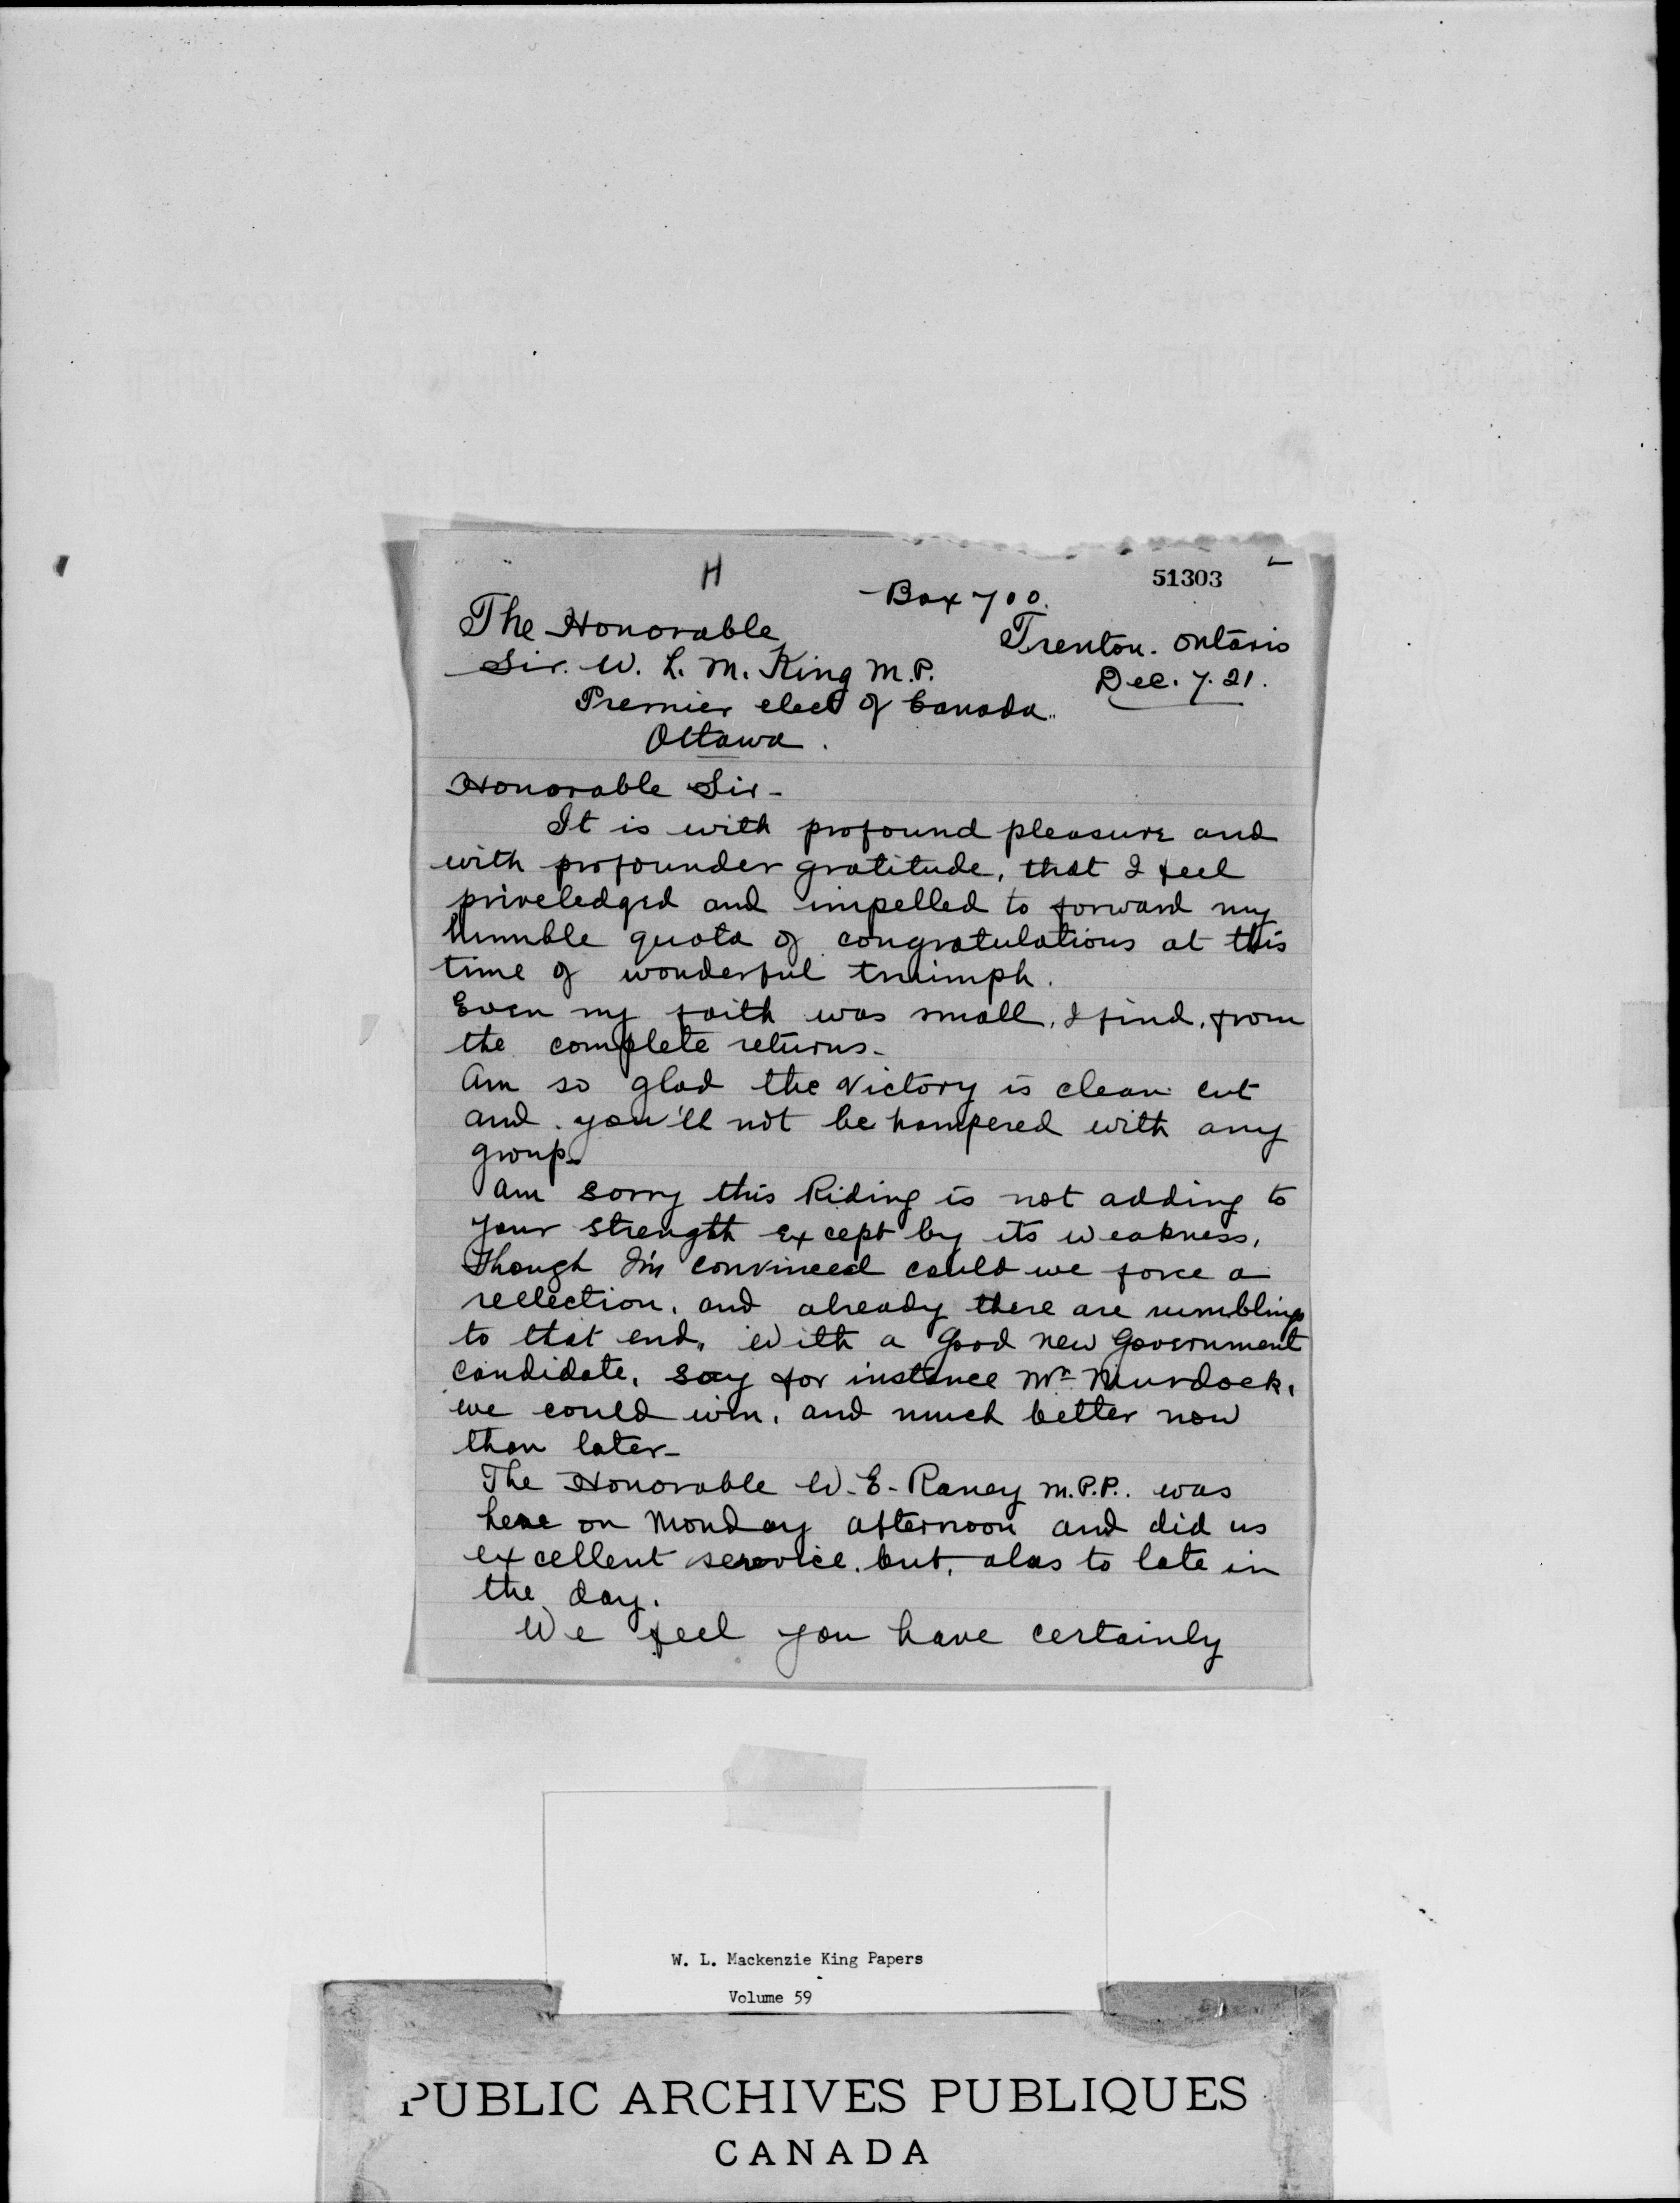 H
51303
Box 700.
The Honorable
Trenton. Ontario
Sir. W. L. M. King M.P.
Dec. 7. 21.
Premier elect of Canada..
Ottawa.
Honorable Sir-
It is with profound pleasure and
with profounder gratitude, that I feel
priveledged and impelled to forward my
humble quota of congratulations at this
time of wonderful truimph.
Even my faith was small, I find, from
the complete returns-
Am so glad the victory is clean cut
and you'll not be hampered with any
group-
Am sorry this Riding is not adding to
your strength except by its weakness,
though I'm convinced could we force a
rellection, and already there are rumblings
to that end, With a good new Government
candidate, say for instance Mr. Murdock,
we could win, and much better now
than later-
The Honorable W. E. Raney M.P.P. was
here on Monday afternoon and did us
excellent service, but, alas to late in
the day.
We feel you have certainly
W. L. Mackenzie King Papers
Volume 59
PUBLIC ARCHIVES PUBLIQUES
CANADA